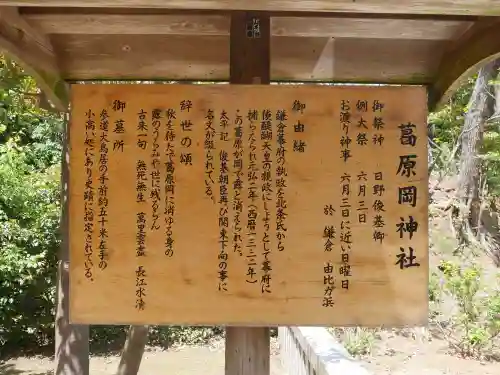 葛原岡神社
御祭神 日野俊基卿
例大祭 六月三日
お渡り神事 六月三日に近い日曜日
於 鎌倉 由比ガ浜
御由緒
鎌倉幕府の執政を北条氏から
後醍醐天皇の親政にしようとして幕府に
捕えられ元弘二年(西暦一三三二年)
この葛原が岡で露と消えられた。
太平記 俊基朝臣再び関東下向の事に
名文が綴られている。
辞世の頌
秋を待たで葛原岡に消ゆる身の
露のうらみや世に残るらん
古来一句 無死無生 萬里雲盡 長江水清
御墓所
参道大鳥居の手前約五十米左手の
小高い処にあり史蹟に指定されている。